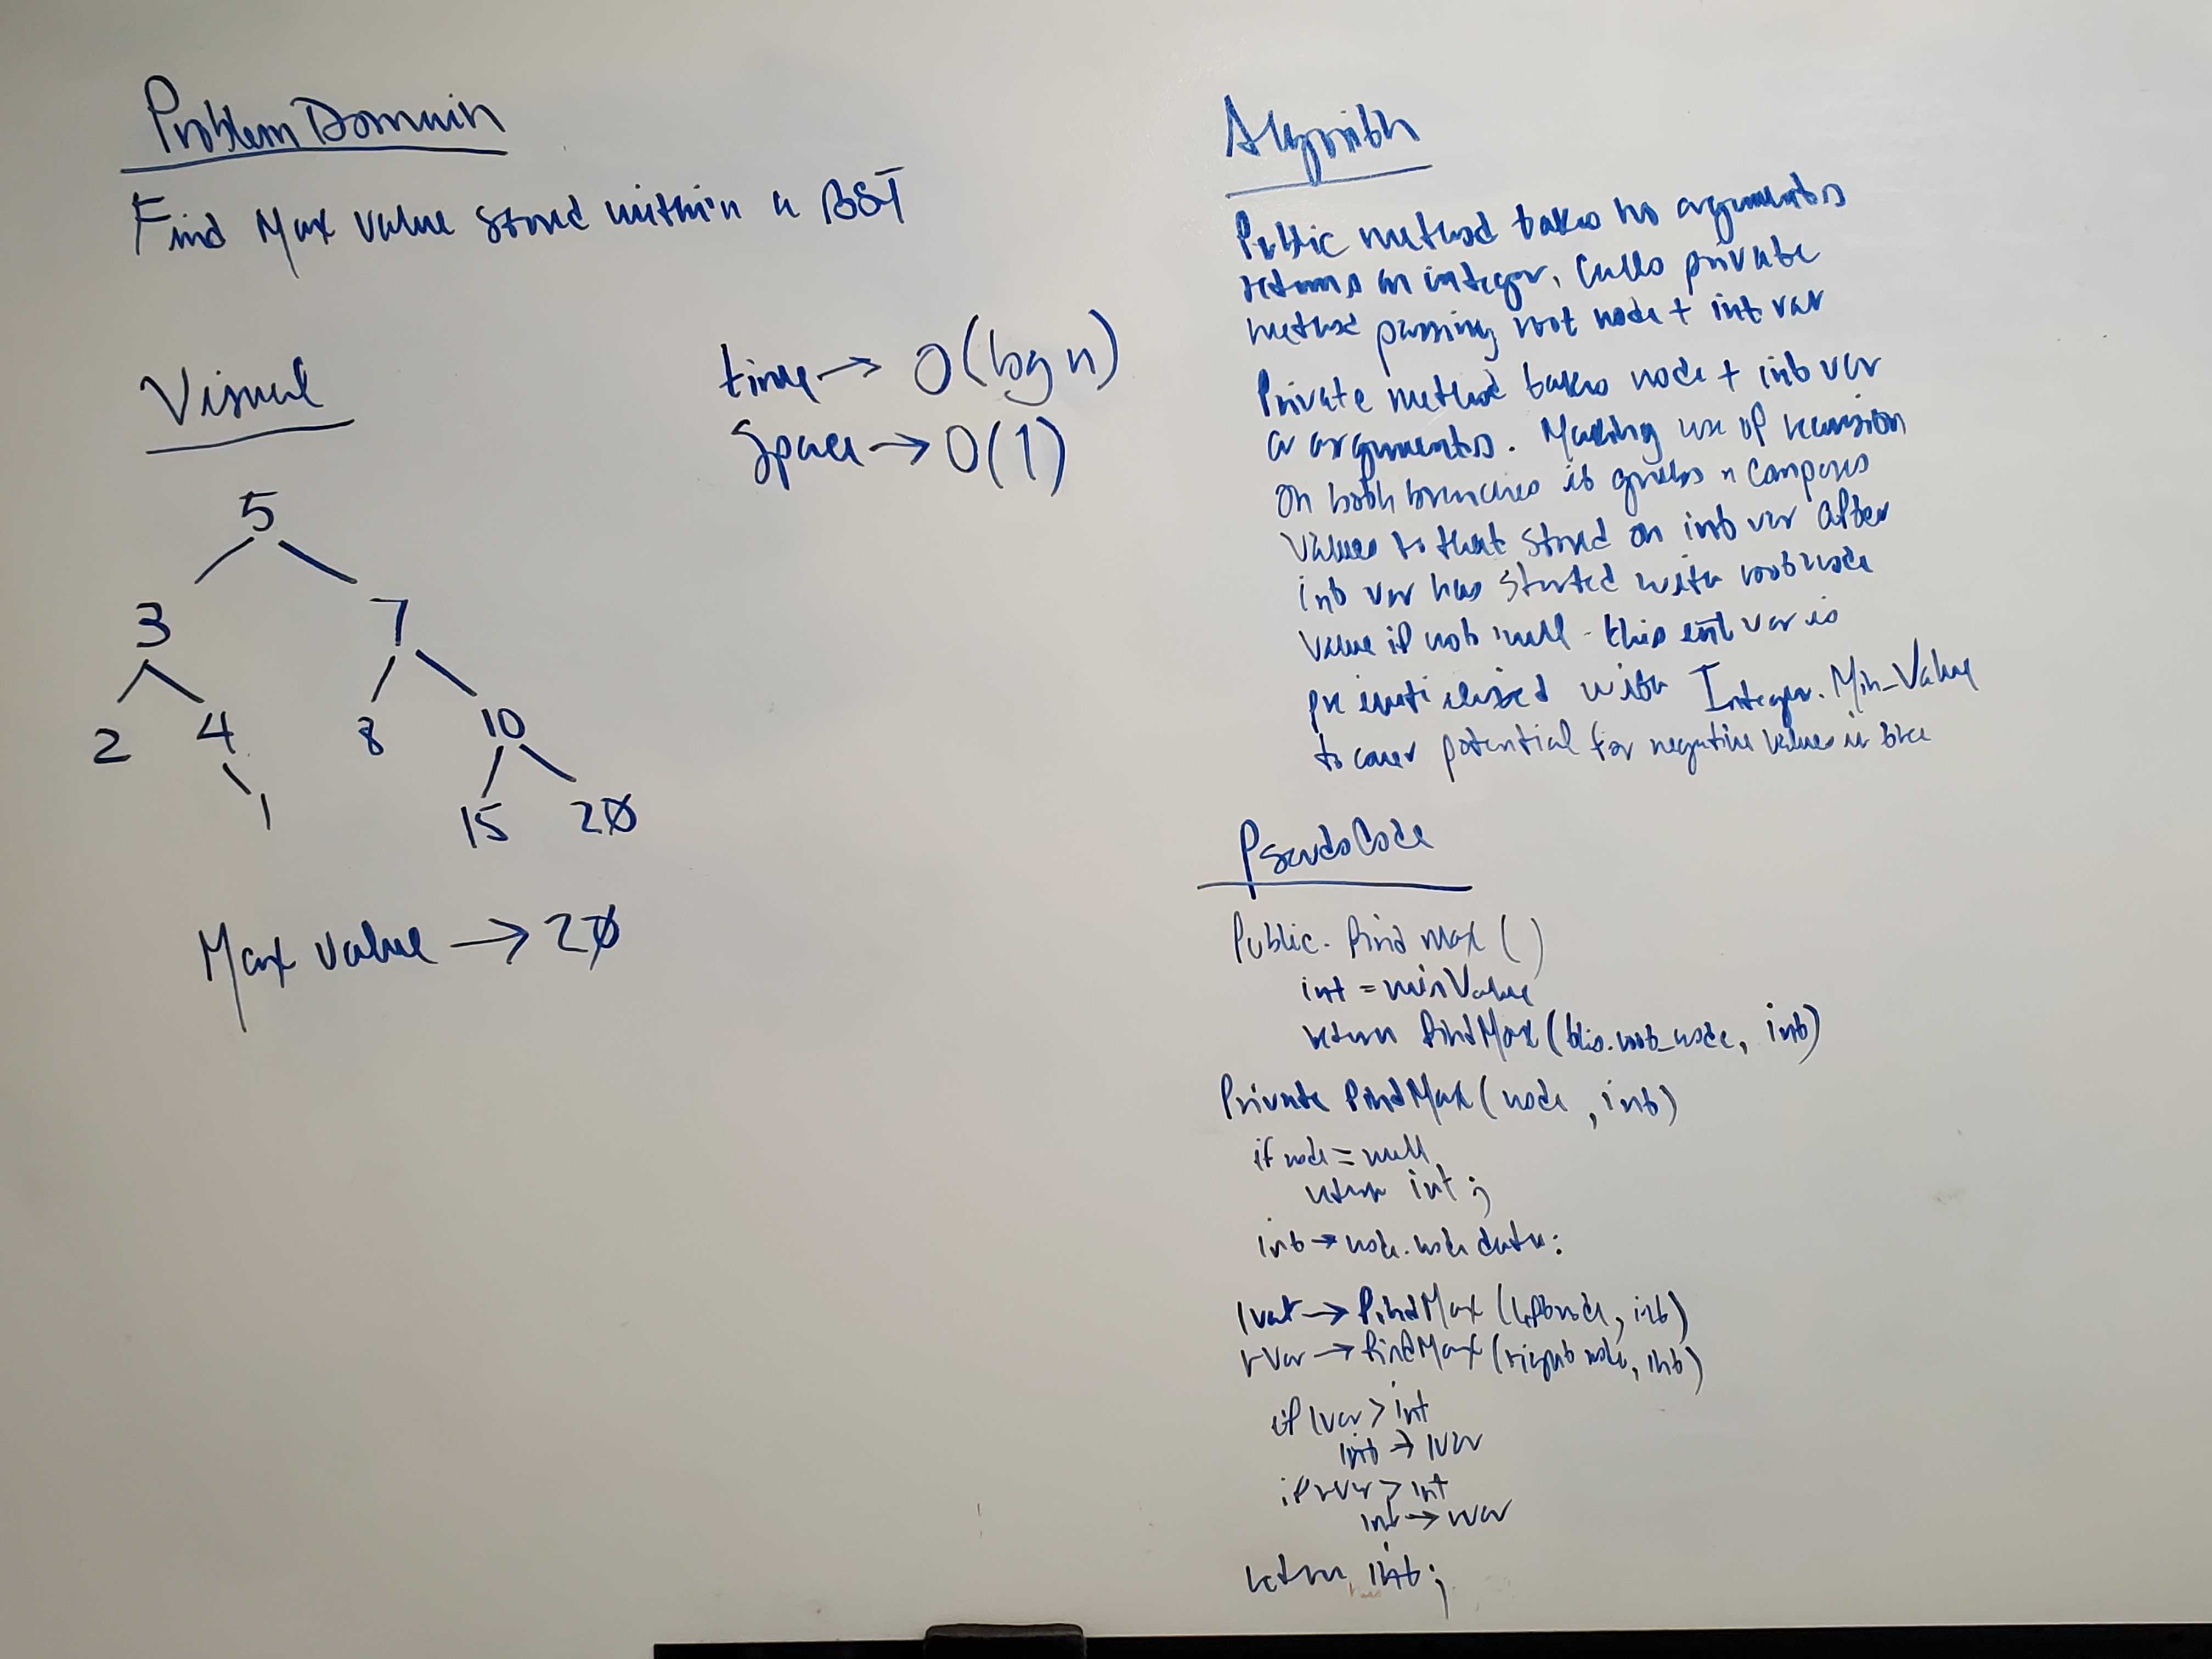 Problem Domain
Find Max value stored within a BST
Visual
time → O(log n)
Space → O(1)
5
3 7
2 4 8 10
1 15 20
Max value → 20
Algorithm
Public method takes no arguments
returns an integer. Calls private
method passing root node + int var
Private method takes node + int var
as arguments. Making use of recursion
on both branches it grabs n compares
values to that stored on int var after
int var has started with root node
value if not null - this int var is
pre initialized with Integer.Min_Value
to cover potential for negative values in tree
PseudoCode
Public. find max ()
int = minValue
return findMax (this.root_node, int)
Private findMax (node, int)
if node = null
return int;
int → node.node data:
lvar → findMax (left node, int)
rvar → findMax (right node, int)
if lvar > int
int → lvar
if rvar > int
int → rvar
return int;